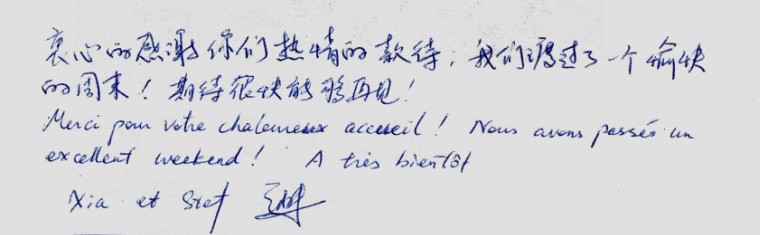 衷心的感谢你们热情的款待，我们度过了一个愉快
的周末！期待很快能够再见！
Merci pour votre chaleureux accueil ! Nous avons passés un
excellent weekend ! A très bientôt
Xia et Stef